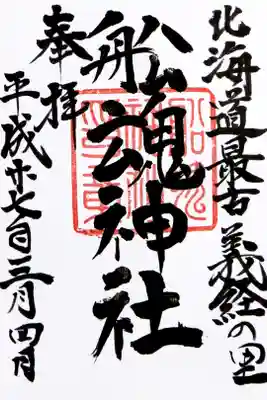 北海道最古 義経の里
船魂神社
奉拝
平成廿七年三月四日